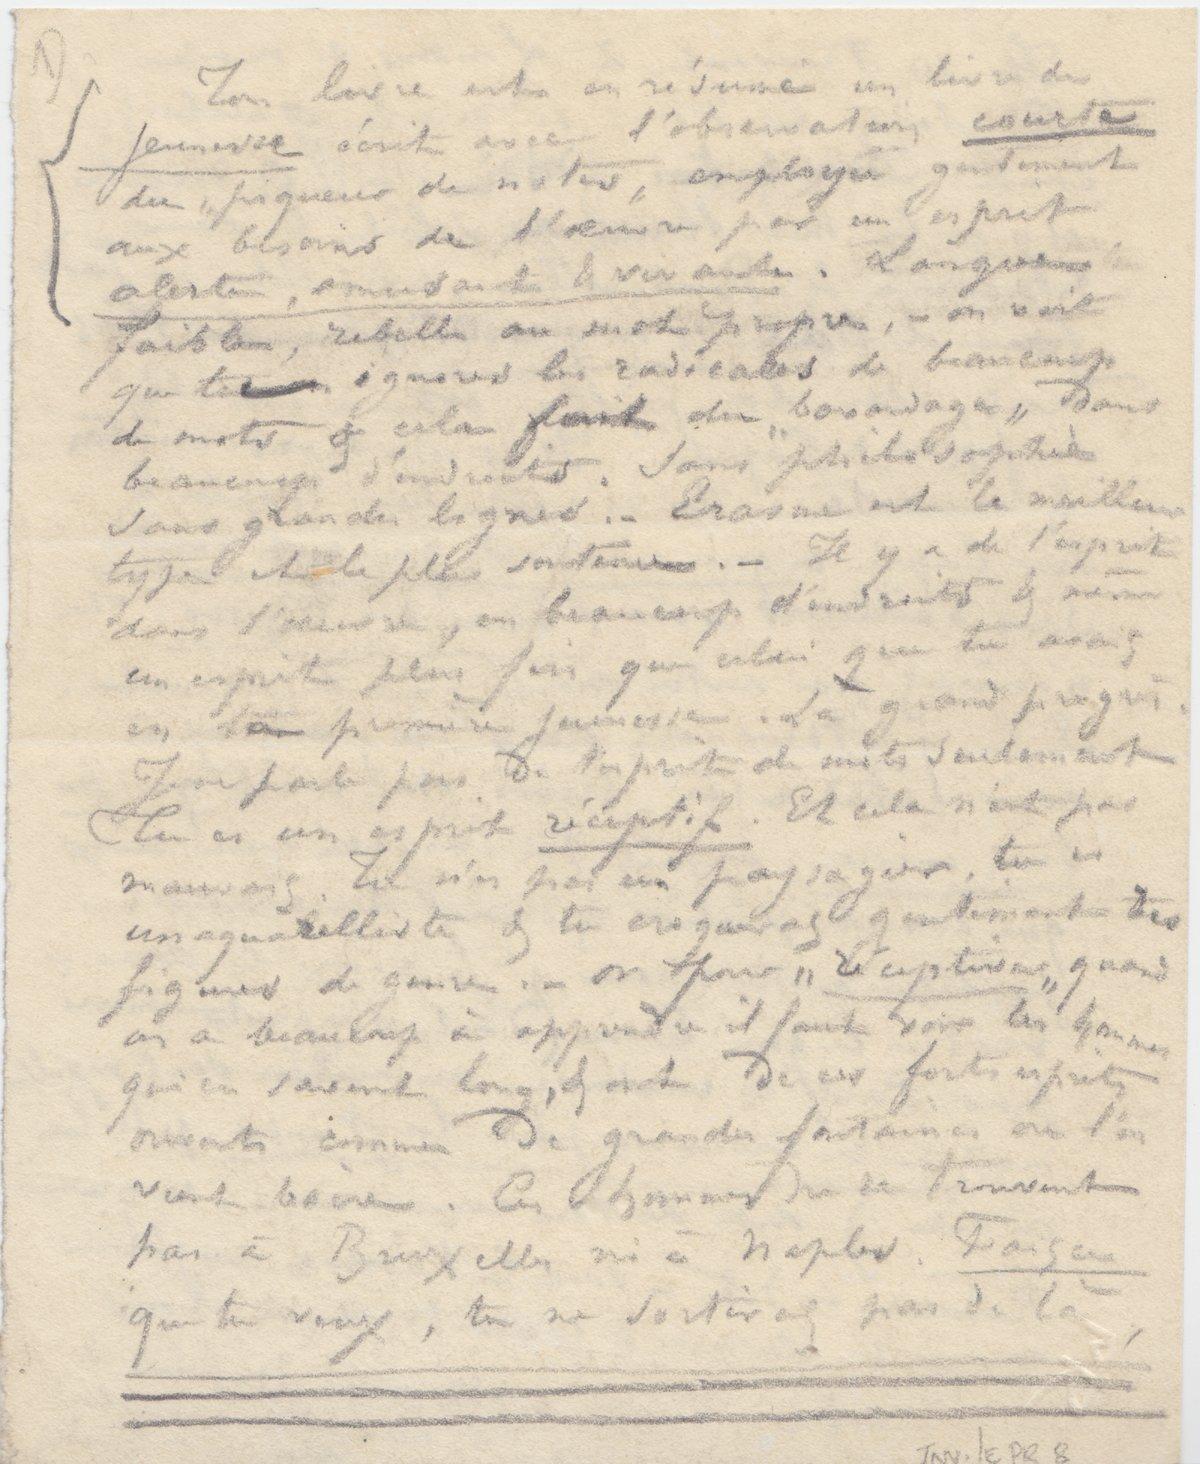 1)
Ton livre est en résumé un livre de
jeunesse écrit avec l'observation courte
du „piqueur de notes„ employée gentiment
aux besoins de l'œuvre par un esprit
alerte, amusant & vivant. Langue
faible, rebelle au mot propre, – on voit
que tu ignores les radicales de beaucoup
de mots & cela fait du „bavardage„ dans
beaucoup d'endroits. Sans philosophie
sans grandes lignes. – Erasme est le meilleur
type et le plus soutenu. – Il y a de l'esprit
dans l'œuvre, en beaucoup d'endroits & même
un esprit plus fin que celui que tu avais
en ta première jeunesse. Là grand progrès.
Je ne parle pas de l'esprit de mots seulement
Tu es un esprit réceptif. Et cela n'est pas
mauvais. Tu n'es pas un paysagiste, tu es
un aquarelliste & tu croqueras gentiment tes
figures de genre. – or pour „réceptives„ quand
on a beaucoup à apprendre il faut voir les hommes
qui en savent long, & ont de ces forts esprits
ouverts comme de grandes fontaines où l'on
vient boire. Ces hommes ne se trouvent
pas à Bruxelles ni à Naples. Fais ce
que tu veux, tu ne sortiras pas de là,
INV. / EPR 8